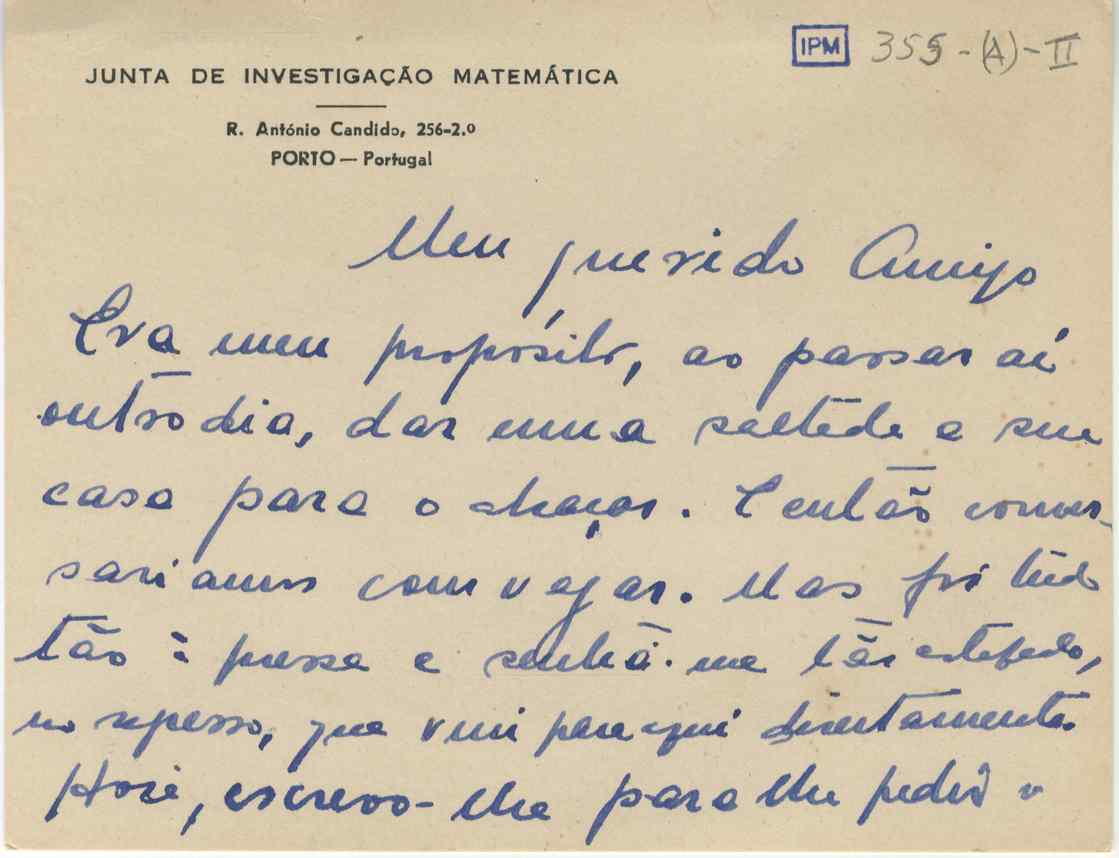 IPM 355-(A)-II
JUNTA DE INVESTIGAÇÃO MATEMÁTICA
R. António Candido, 256-2.º
PORTO — Portugal
Meu querido Amigo
Era meu propósito, ao passar aí
outro dia, dar uma saltada a sua
casa para o abraçar. E então conver-
sariamos com vagar. Mas foi tudo
tão à pressa e sentia-me tão estafado,
no regresso, que vim para aqui directamente.
Hoje, escrevo-lhe para lhe pedir o